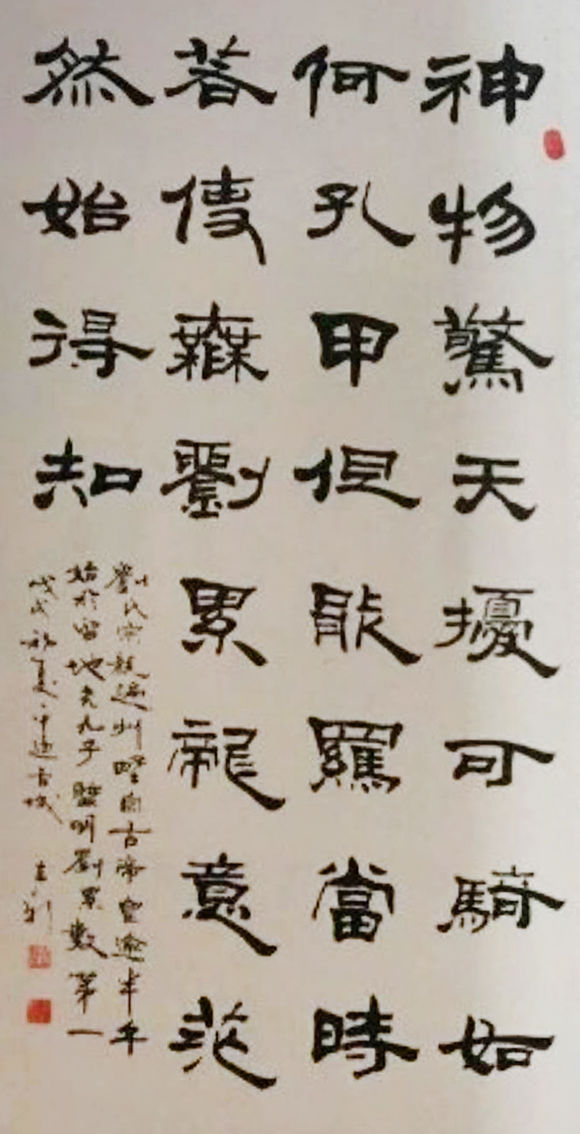 神物驚天擾可騎如
何孔甲但能羈當時
若使無劉累龍意茫
然始得知
劉氏宗親遍州野自古帝皇逾半千
始於留地育九子賢明劉累數第一
戊戌初夏平逥古城